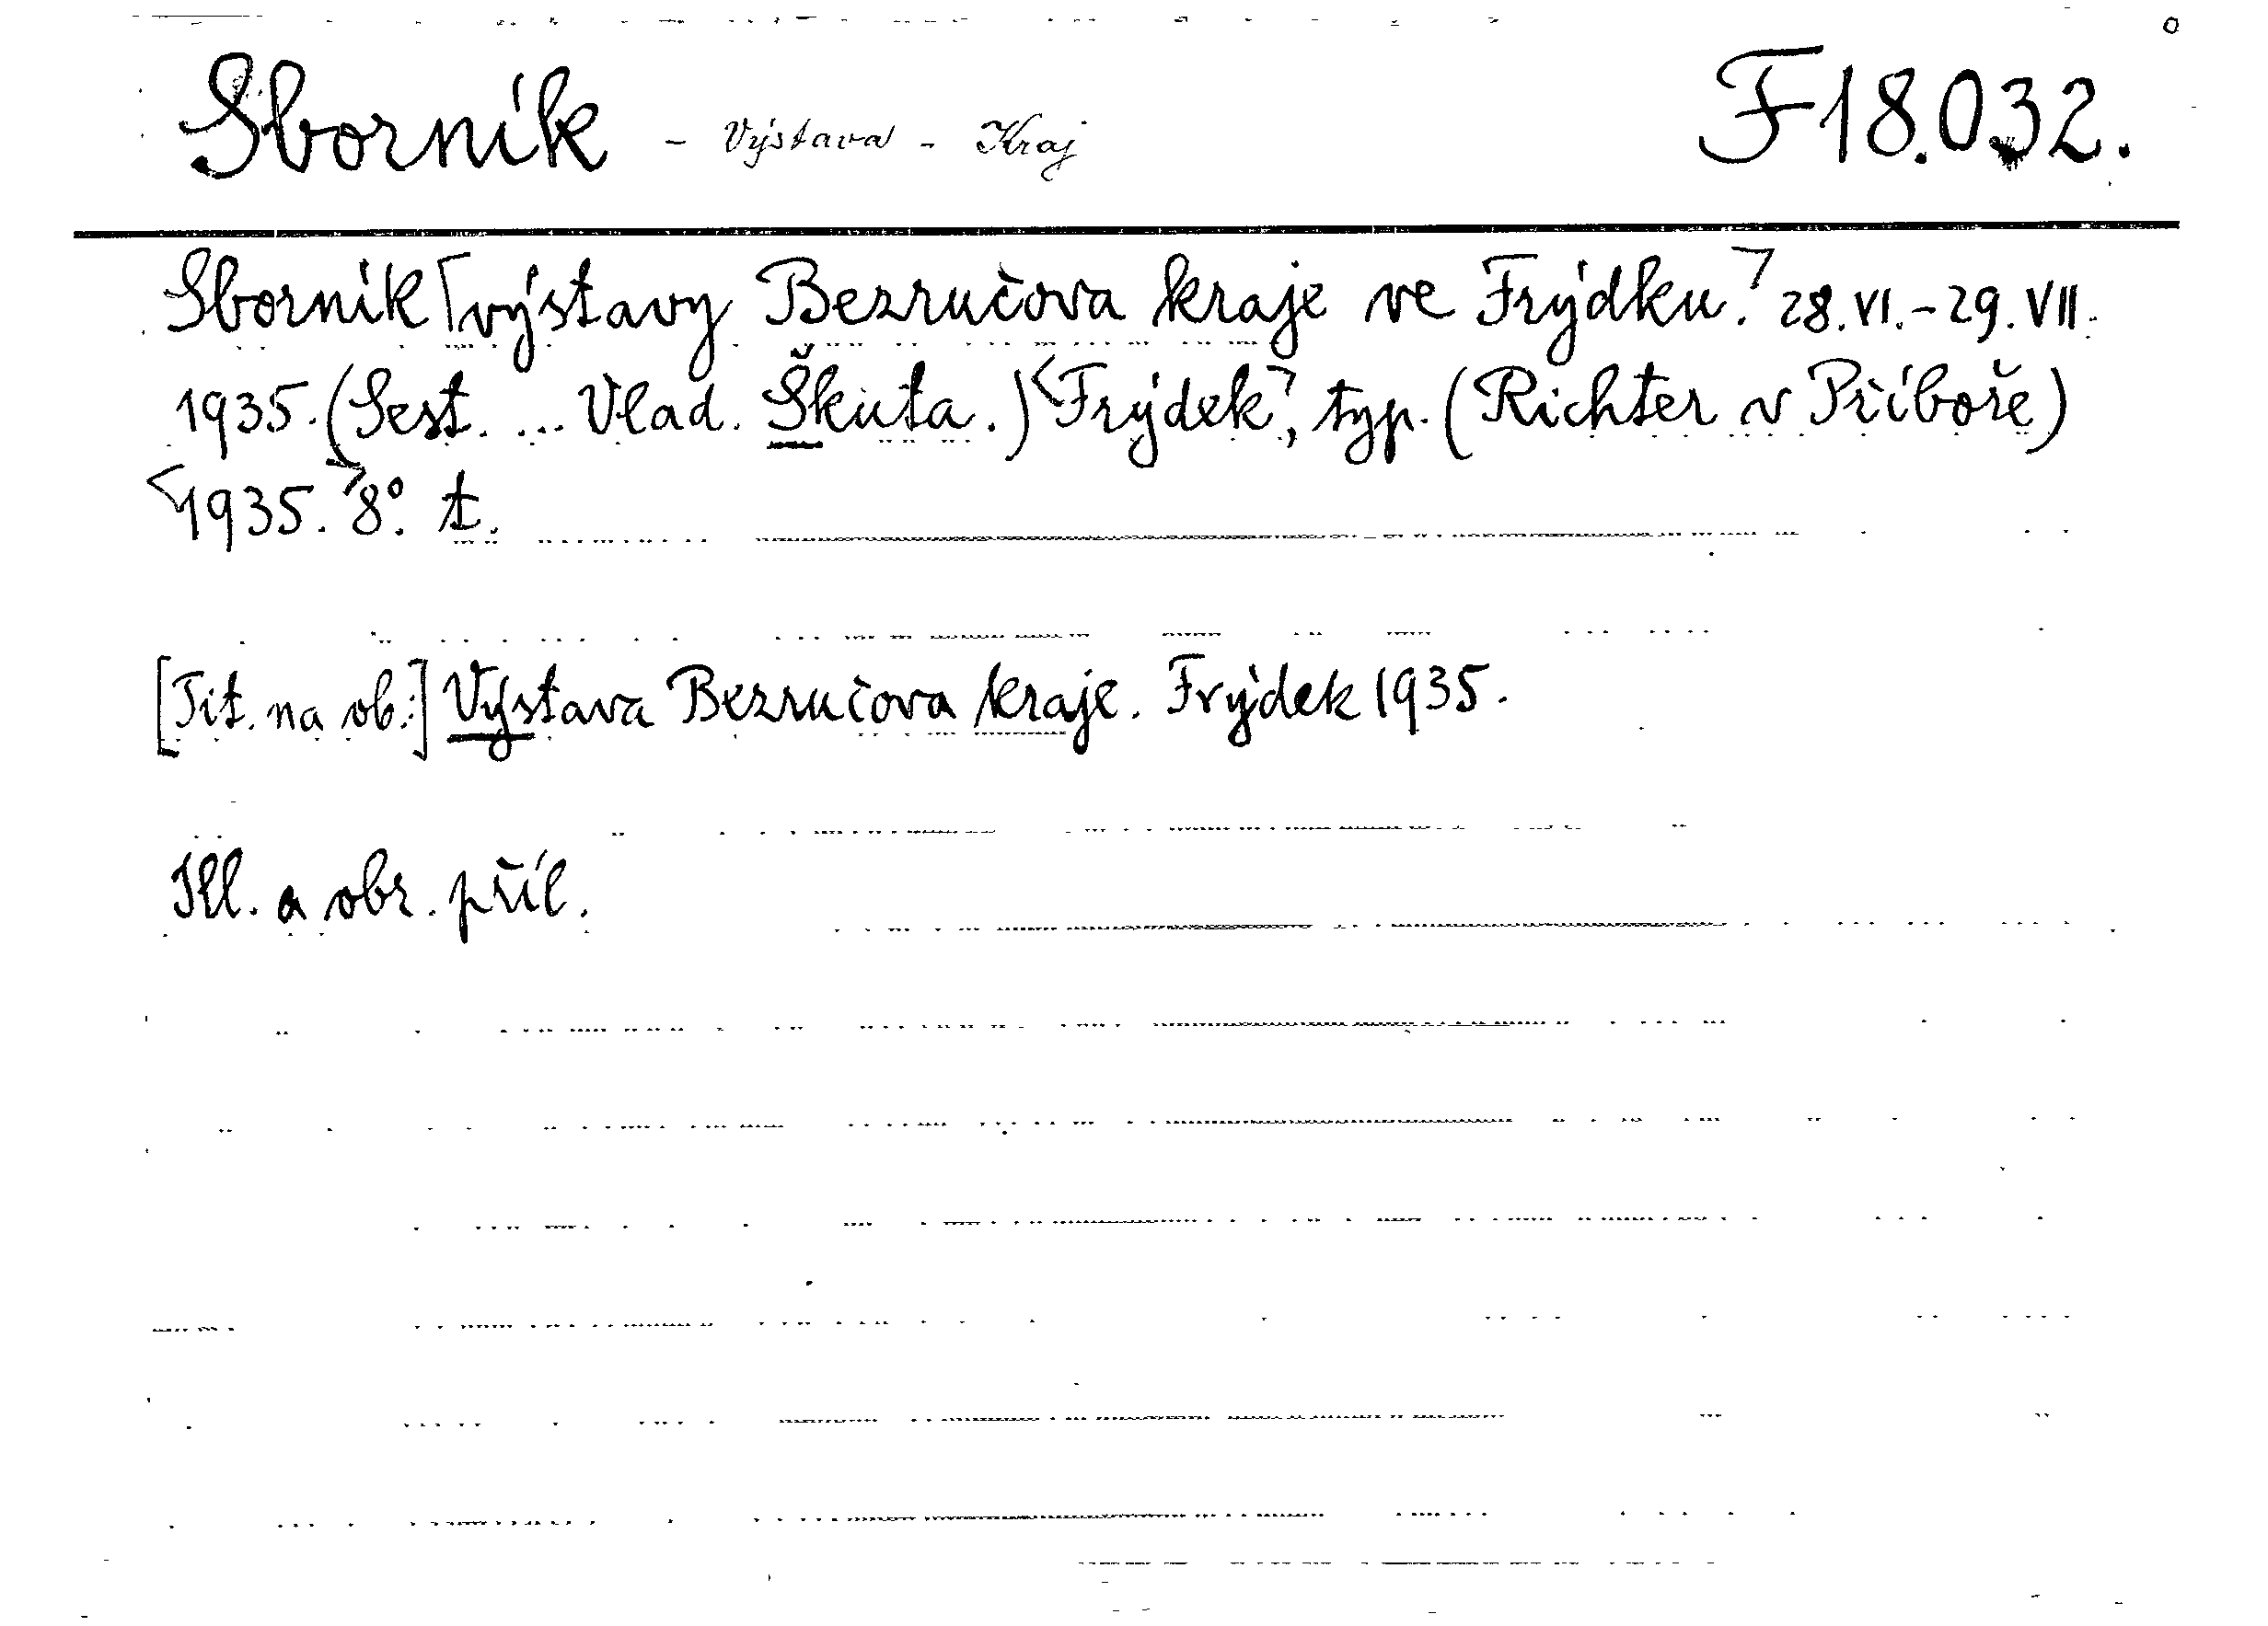 Sborník - Výstava - Kraj F 18.032.
Sborník ⌈výstavy Bezručova kraje ve Frýdku.⌉ 28.VI.-29.VII.
1935. (Sest. ... Vlad. Škuta.) <Frýdek⌉, typ. (Richter v Příboře)
<1935.> 8°. t.
[Tit. na ob.:] Výstava Bezručova kraje. Frýdek 1935.
Ill. a obr. příl.